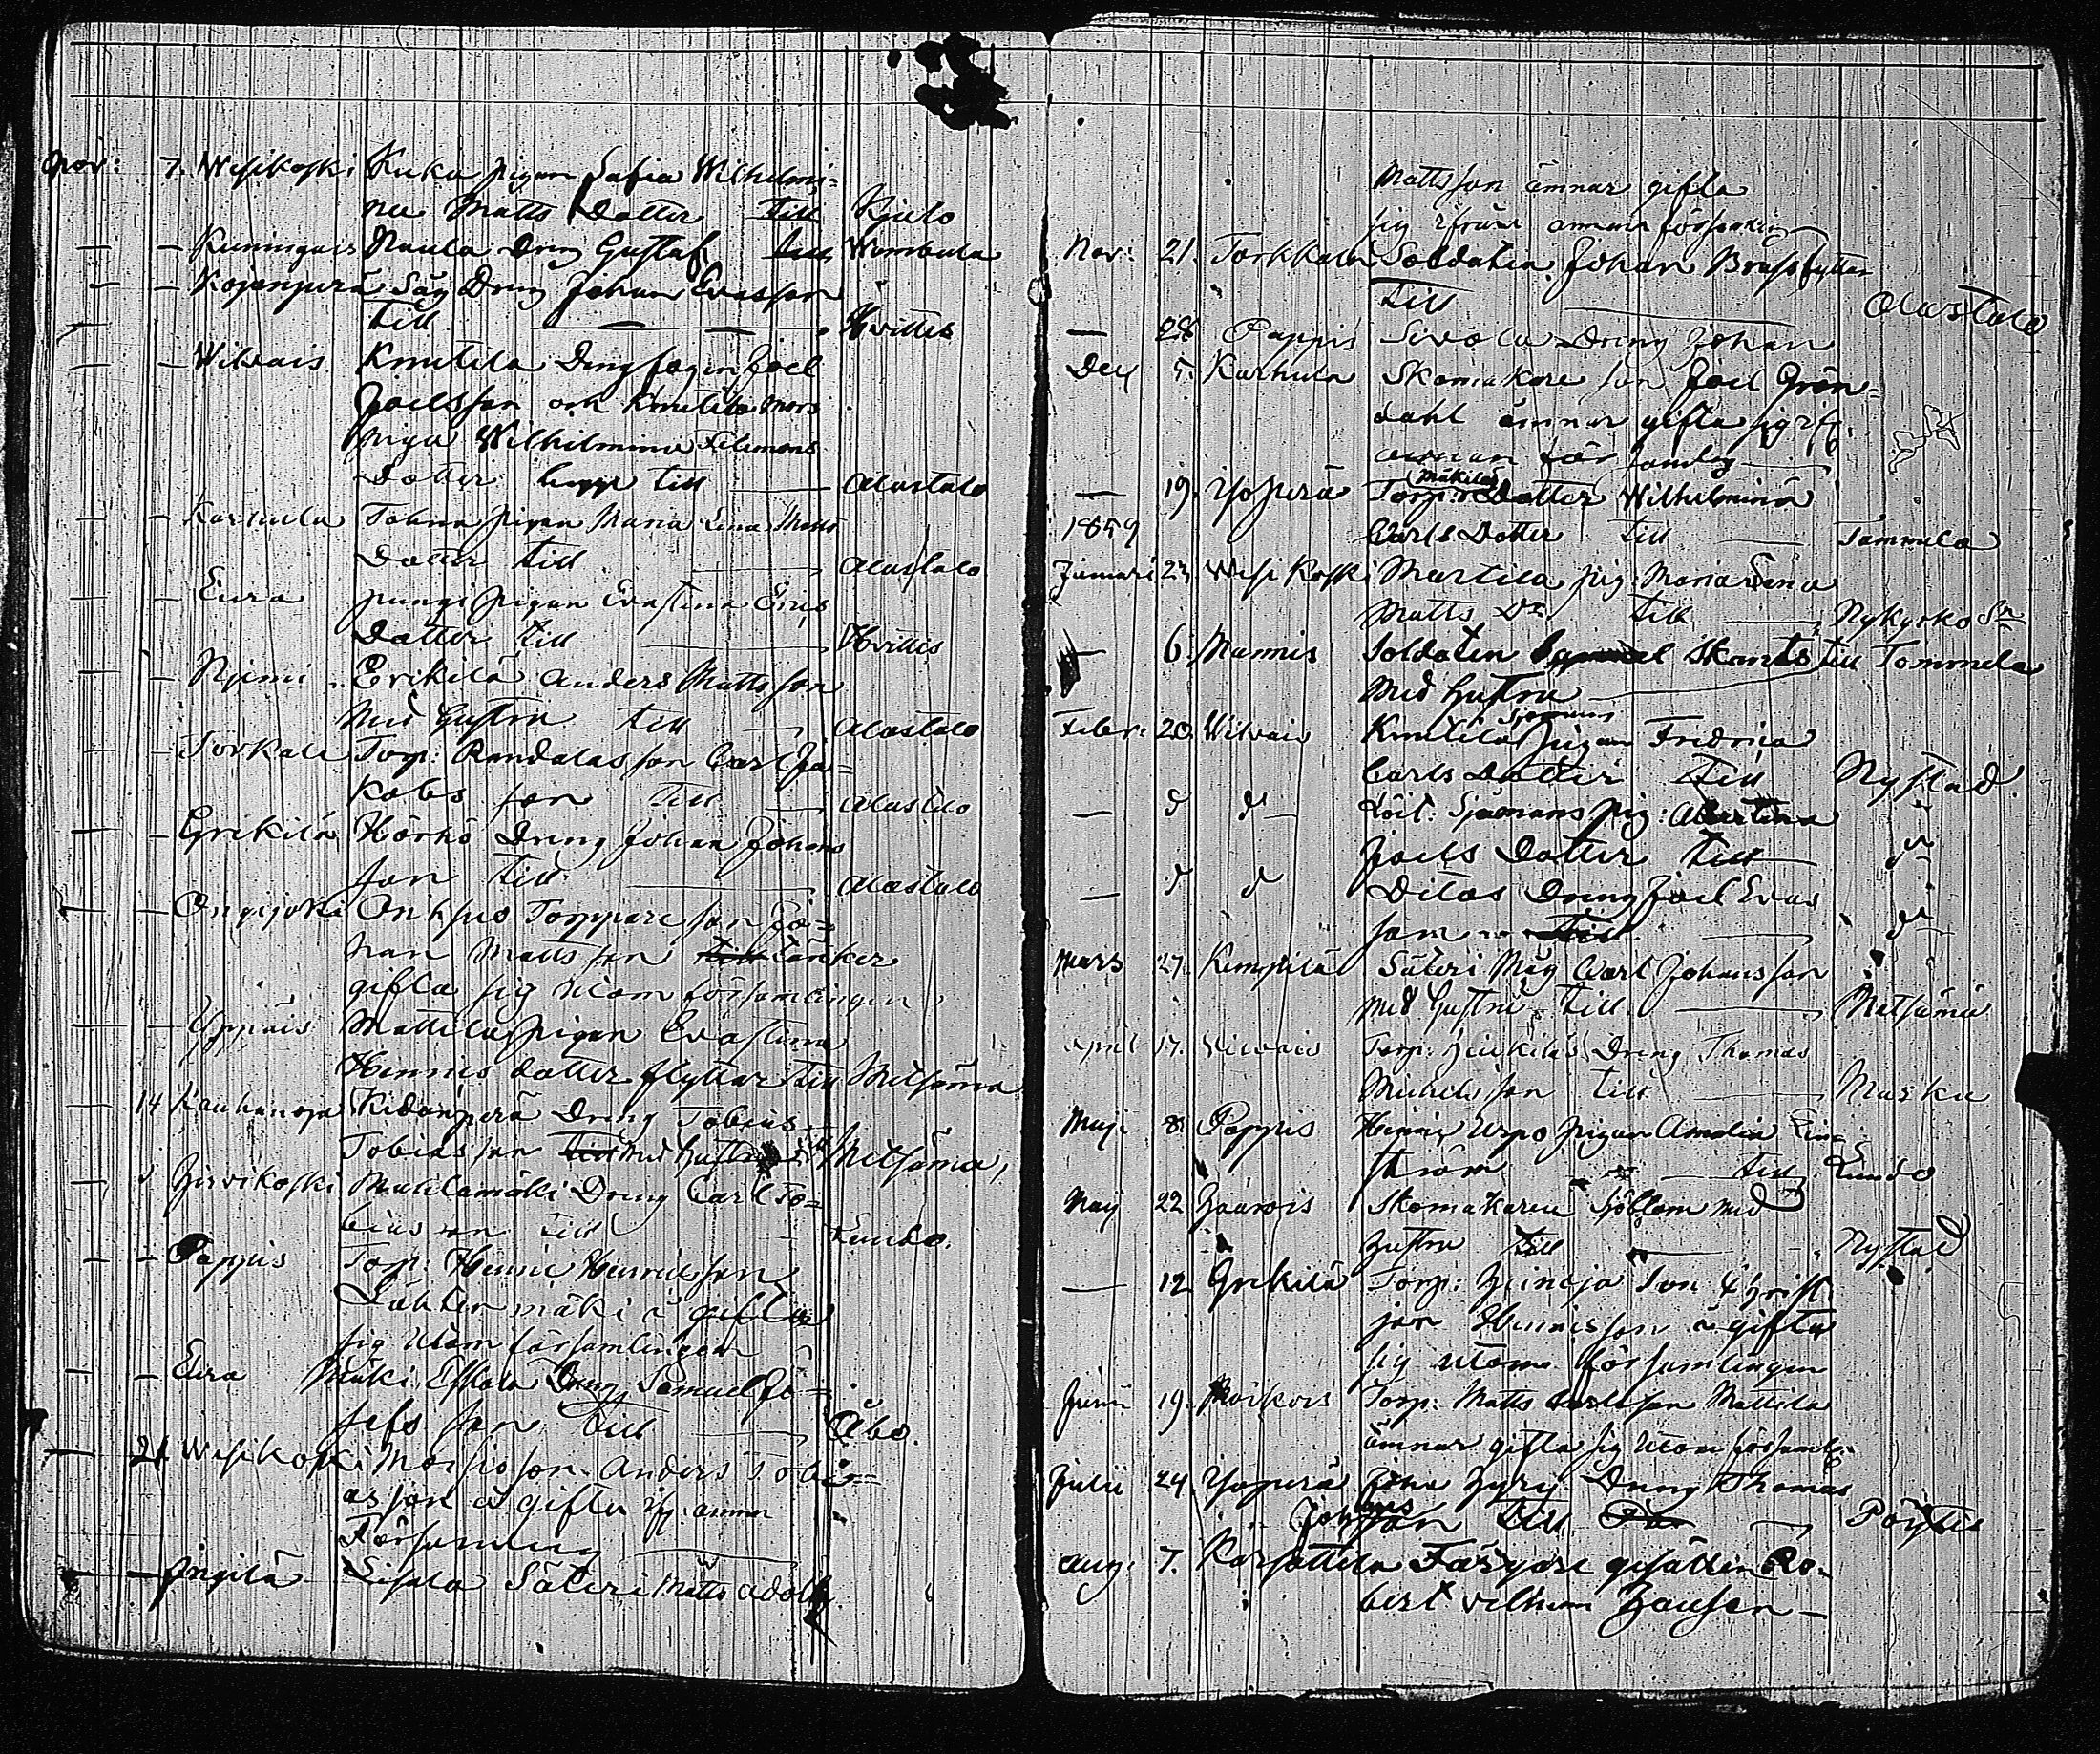 Nov: 7. Wesikoski Kuka pigan Safia Wilhelmi-
na Matts Dotter till Kjulo
— — Kuningais Naula Dreng Gustaf till Wambula
— — Kojonperä Säg Dreng Johan Evasson
till — Hvittis
— — Wilvais Knutila Dreng Joel
Joelsson och Knutila
piga Wilhelmina Filemons
Dotter till — Alastalo
— — Karhula Tohna pigan Maria Lena Matts
Dotter till — Alastalo
— — Eura pungi pigan Evastina Erics
Dotter till — Hvittis
— — Njemi Erikilä Anders Mattsson
Med Hustru till — Alastalo
— — Torkala Torp: Randalas son Carl Ja-
kobs son till — Alastalo
— — Eyrikilä Hörhö Dreng Johan Johans
son till — Alastalo
— — Orisuo Torppare son Jo-
han Matts son till tänker
gifta sig utom församlingen
— — Yppäis Mattila pigan Evastina
Hennis dotter flyttar till Metsämä
— 14 Kauhanoja Kidanperä Dreng Tobias
Tobias son till med hustru till Metsämä,
d Jirvikoski Mukilamäki Dreng Carl To-
biasson till Lundo.
— — Pappis Torp: Henric Henricsson
Lähtenmäki ä gifta
sig utom församlingen
— — Eura Mäki Eskola Dreng Samuel Jo-
sefs son till — Åbo.
— 21 Wesikoski Moisisson Anders Tobi-
asson ä gifta if annan
Församling —
— — Jngilä Sisala Säteri Matts Adolf
Mattsson ämnar gifta
sig ifrån annan församling
Nov: 21. Torkkala Soldaten Johan Bråss flyttar
till — Alastalo
— 28 Pappis Sivola Dreng Johan
Dec 5. Karhula Skomakare son Joel Grön-
dahl ämnar gifta sig if
annan församling —
— 19. Ypperä Torp: Mäkilä Dotter Wilhelmina
1859 Carls Dotter till — Tammela
Januari 23 Wesikoski Martila pig: Maria Lena
Matts Dr till — Nykyrko Sn
— 6. Mannis Soldaten Skants till Tammela
Med hustru —
Febr: 20. Wilvais Knutila Sjömans pigan Fredrica
Carls Dotter till Nystad.
— d d — Löit: Sjömans pig: Albertina
Joels Dotter till — do
— d d Ditos Dreng Joel Evas
son till — do
Mars 27. Kimpilä Säteri Måg Carl Johansson
med hustru till — Metsämä
April 17. Wilvais Torp: Dreng Thomas
Michels son till — Masku
Maj. 8. Pappis Henric Urpo pigan Amalia Lin-
ström — till Lundo
Maij 22 Jaarois Skomakaren Sjöblom med
hustru till — Nystad
— 12 Grekilä Torp: son Christ-
jan Hennisson ä gifta
sig utom församlingen
Junii 19. Torp: Matts Carlsson Mattila
ämnar gifta sig utom församl:
Julii 24. Yopperä Johu Jyry Dreng Thomas
Johansson till — Pöytis
Aug: 7. Karsattila Färgare gesällen Ro-
bert Vilhem Jansen —